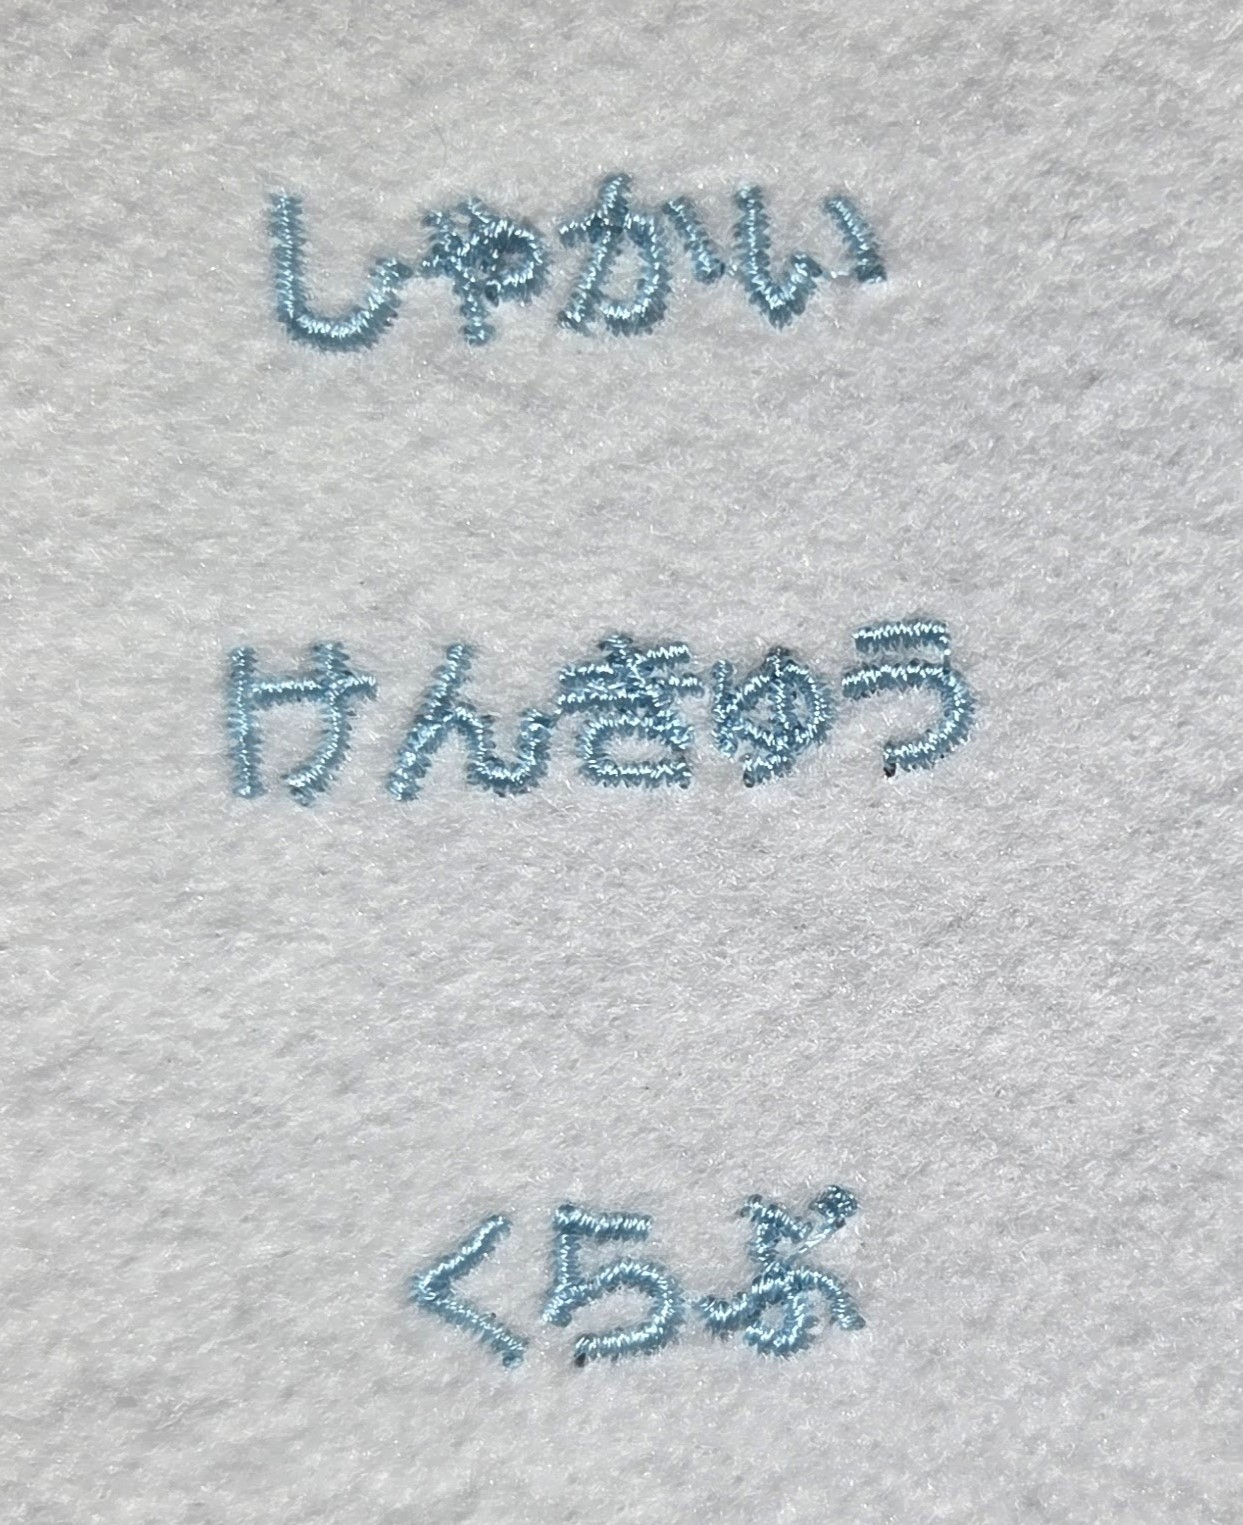 しゃかい
けんきゅう
くらぶ